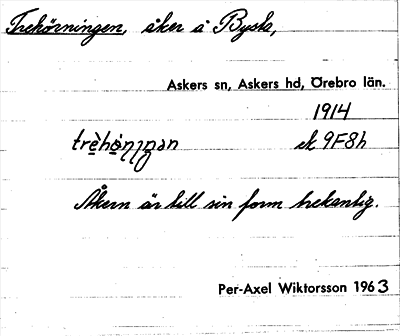 Trehörningen, åker å Bysta,
Askers sn, Askers hd, Örebro län.
1914
ek 9F8h
Åkern är till sin form trekantig.
Per-Axel Wiktorsson 1963